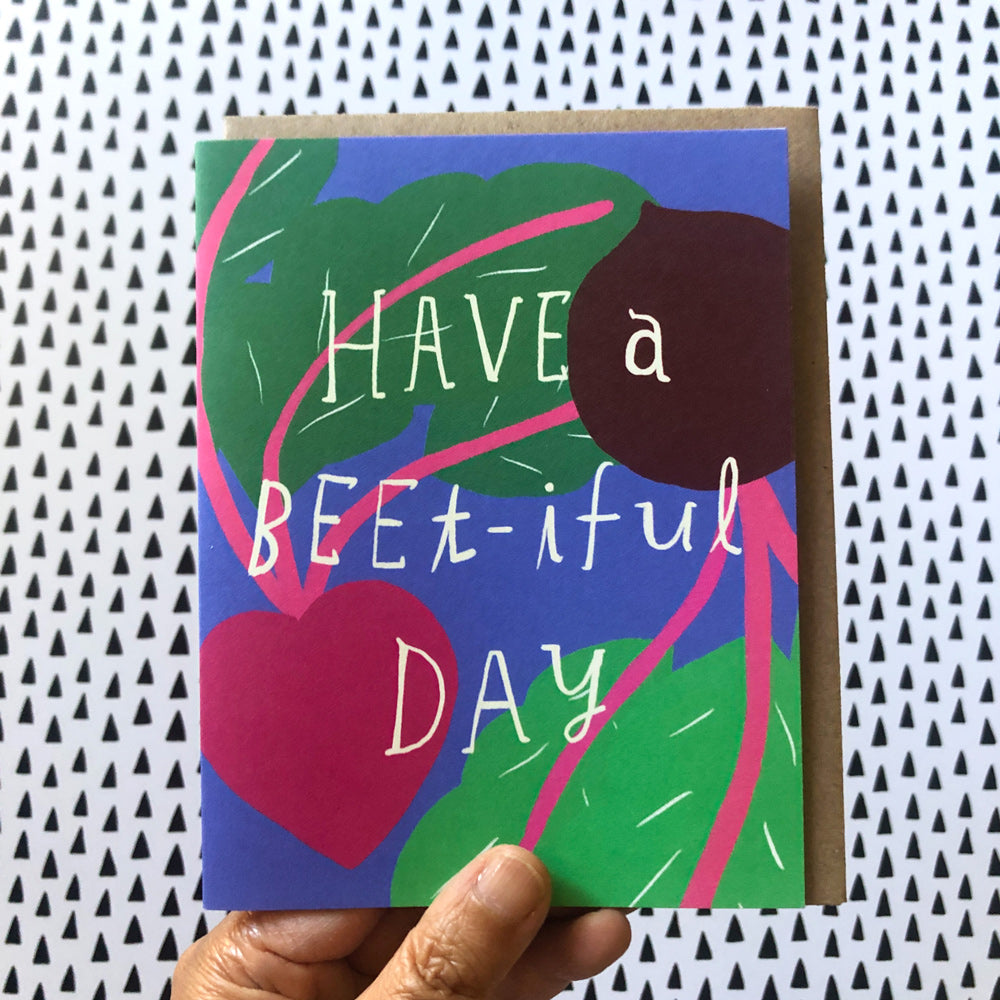 HAVE a
BEEt-iful
DAY